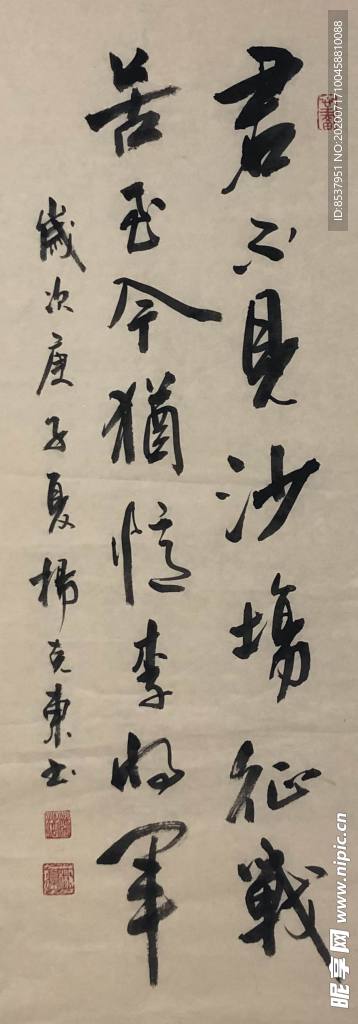 君不見沙場征戰
苦至今猶憶李將軍
歲次庚子夏楊克東书
ID:8537951 NO:20200717100458810088
昵享网 www.nipic.cn